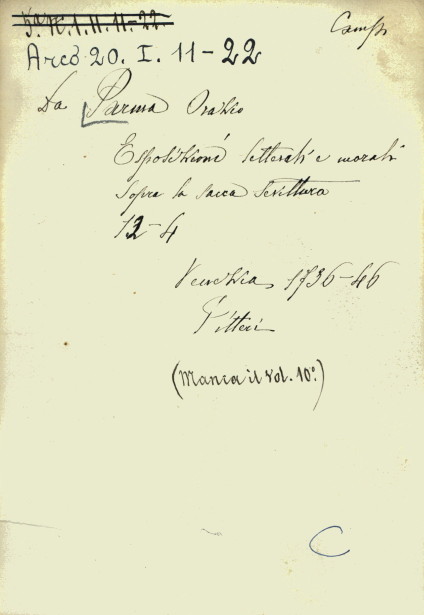 5ª.VI.1.II.11.-22.
Camp.
Arcò 20. I. 11-22
Da Parma Orazio
Esposizioni letterali e morali
sopra la sacra Scrittura
12-4
Venezia, 1736-46
Pitteri
(Manca il vol. 10º.)
C